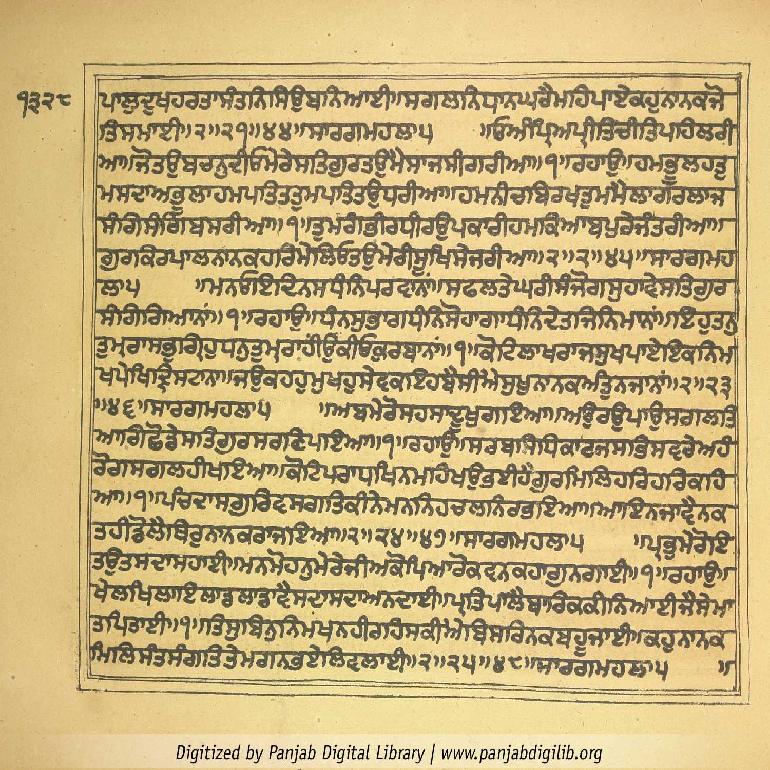 ੧੩੨੮
ਪਾਲੁਦੁਖਹਰਤਾਸੰਤਨਿਸਿਉਬਨਿਆਈ॥ਸਗਲਨਿਧਾਨਘਰੈਮਹਿਪਾਏਕਹੁਨਾਨਕਜੋ
ਤਿਸਮਾਈ॥੨॥੨੧॥੪੪॥ਸਾਰਗਮਹਲਾ੫ ॥ਓਅੰਪ੍ਰਿਅਪ੍ਰੀਤਿਚੀਤਿਪਹਿਲਰੀ
ਆ॥ਜੋਤਉਬਚਨੁਦੀਓਮੇਰੇਸਤਿਗੁਰਤਉਮੈਸਾਜਸੀਗਰੀਆ॥੧॥ਰਹਾਉ॥ਹਮਭੂਲਹਤੁ
ਮਸਦਾਅਭੂਲਾਹਮਪਤਿਤਤੁਮਪਤਿਤਉਧਰੀਆ॥ਹਮਨੀਚਬਿਰਖਤੁਮਮੈਲਾਗਰਲਾਜ
ਸੰਗਿਸੰਗਿਬਸਰੀਆ॥੧॥ਤੁਮਗੰਭੀਰਧੀਰਉਪਕਾਰੀਹਮਕਿਆਬਪੁਰੇਜੰਤਰੀਆ॥
ਗੁਰਕਿਰਪਾਲਨਾਨਕਹਰਿਮੇਲਿਓਤਉਮੇਰੀਸੂਖਿਸੇਜਰੀਆ॥੨॥੨੨॥੪੫॥ਸਾਰਗਮਹ
ਲਾ੫ ॥ਮਨਓਇਦਿਨਸਧੰਨਿਪਰਵਾਨਾਂ॥ਸਫਲਤੇਘਰੀਸੰਜੋਗਸੁਹਾਵੇਸਤਿਗੁਰ
ਸੰਗਿਗਿਆਨਾਂ॥੧॥ਰਹਾਉ॥ਧੰਨਸੁਭਾਗਧੰਨਿਸੋਹਾਗਾਧੰਨਿਦੇਤਜਿਨਿਮਾਨਾਂ॥ਇਹੁਤਨੁ
ਤੁਮ੍ਰਾਸਭੁਗ੍ਰਿਹੁਧਨੁਤੁਮ੍ਰਾਹੀਂਉਕੀਓਕੁਰਬਾਨਾਂ॥੧॥ਕੋਟਿਲਾਖਰਾਜਸੁਖਪਾਏਇਕਨਿਮ
ਖਪੇਖਿਦ੍ਰਿਸਟਾਨਾ॥ਜਉਕਹਹੁਮੁਖਹੁਸੇਵਕਇਹਬੈਸੀਐਸੁਖੁਨਾਨਕਅੰਤੁਨਜਾਨਾਂ॥੨॥੨੩
॥੪੬॥ਸਾਰਗਮਹਲਾ੫ ॥ਅਬਮੇਰੋਸਹਸਾਦੂਖੁਗਇਆ॥ਅਉਰਉਪਾਉਸਗਲਤਿ
ਆਗਿਛੋਡੇਸਤਿਗੁਰਸਰਣਿਪਇਆ॥੧॥ਰਹਾਉ॥ਸਰਬਸਿਧਿਕਾਰਜਸਭਿਸਵਰੇਅਹੰ
ਰੋਗਸਗਲਹੀਖਇਆ॥ਕੋਟਿਪਰਾਧਖਿਨਮਹਿਖਉਭਈਹੈਗੁਰਮਿਲਿਹਰਿਹਰਿਕਹਿ
ਆ॥੧॥ਪੰਚਦਾਸਗੁਰਿਵਸਗਤਿਕੀਨੇਮਨਨਿਹਚਲਨਿਰਭਇਆ॥ਆਇਨਜਾਵੈਨਕ
ਤਹੀਡੋਲੈਥਿਰੁਨਾਨਕਰਾਜਇਆ॥੨॥੨੪॥੪੭॥ਸਾਰਗਮਹਲਾ੫ ॥ਪ੍ਰਭੁਮੇਰੋਇ
ਤਉਤਸਦਾਸਹਾਈ॥ਮਨਮੋਹਨੁਮੇਰੇਜੀਅਕੋਪਿਆਰੋਕਵਨਕਹਾਗੁਨਗਾਈ॥੧॥ਰਹਾਉ॥
ਖੇਲਖਿਲਾਇਲਾਡਲਾਡਾਵੈਸਦਾਸਦਾਅਨਦਾਈ॥ਪ੍ਰਤਿਪਾਲੈਬਾਰਿਕਕੀਨਿਆਈਜੈਸੇਮਾ
ਤਪਿਤਾਈ॥੧॥ਤਿਸੁਬਿਨੁਨਿਮਖਨਹੀਰਹਿਸਕੀਐਬਿਸਰਿਨਕਬਹੂਜਾਈ॥ਕਹੁਨਾਨਕ
ਮਿਲਿਸੰਤਸੰਗਤਿਤੇਮਗਨਭਏਲਿਵਲਾਈ॥੨॥੨੫॥੪੮॥ਸਾਰਗਮਹਲਾ੫ ॥
Digitized by Panjab Digital Library | www.panjabdigilib.org